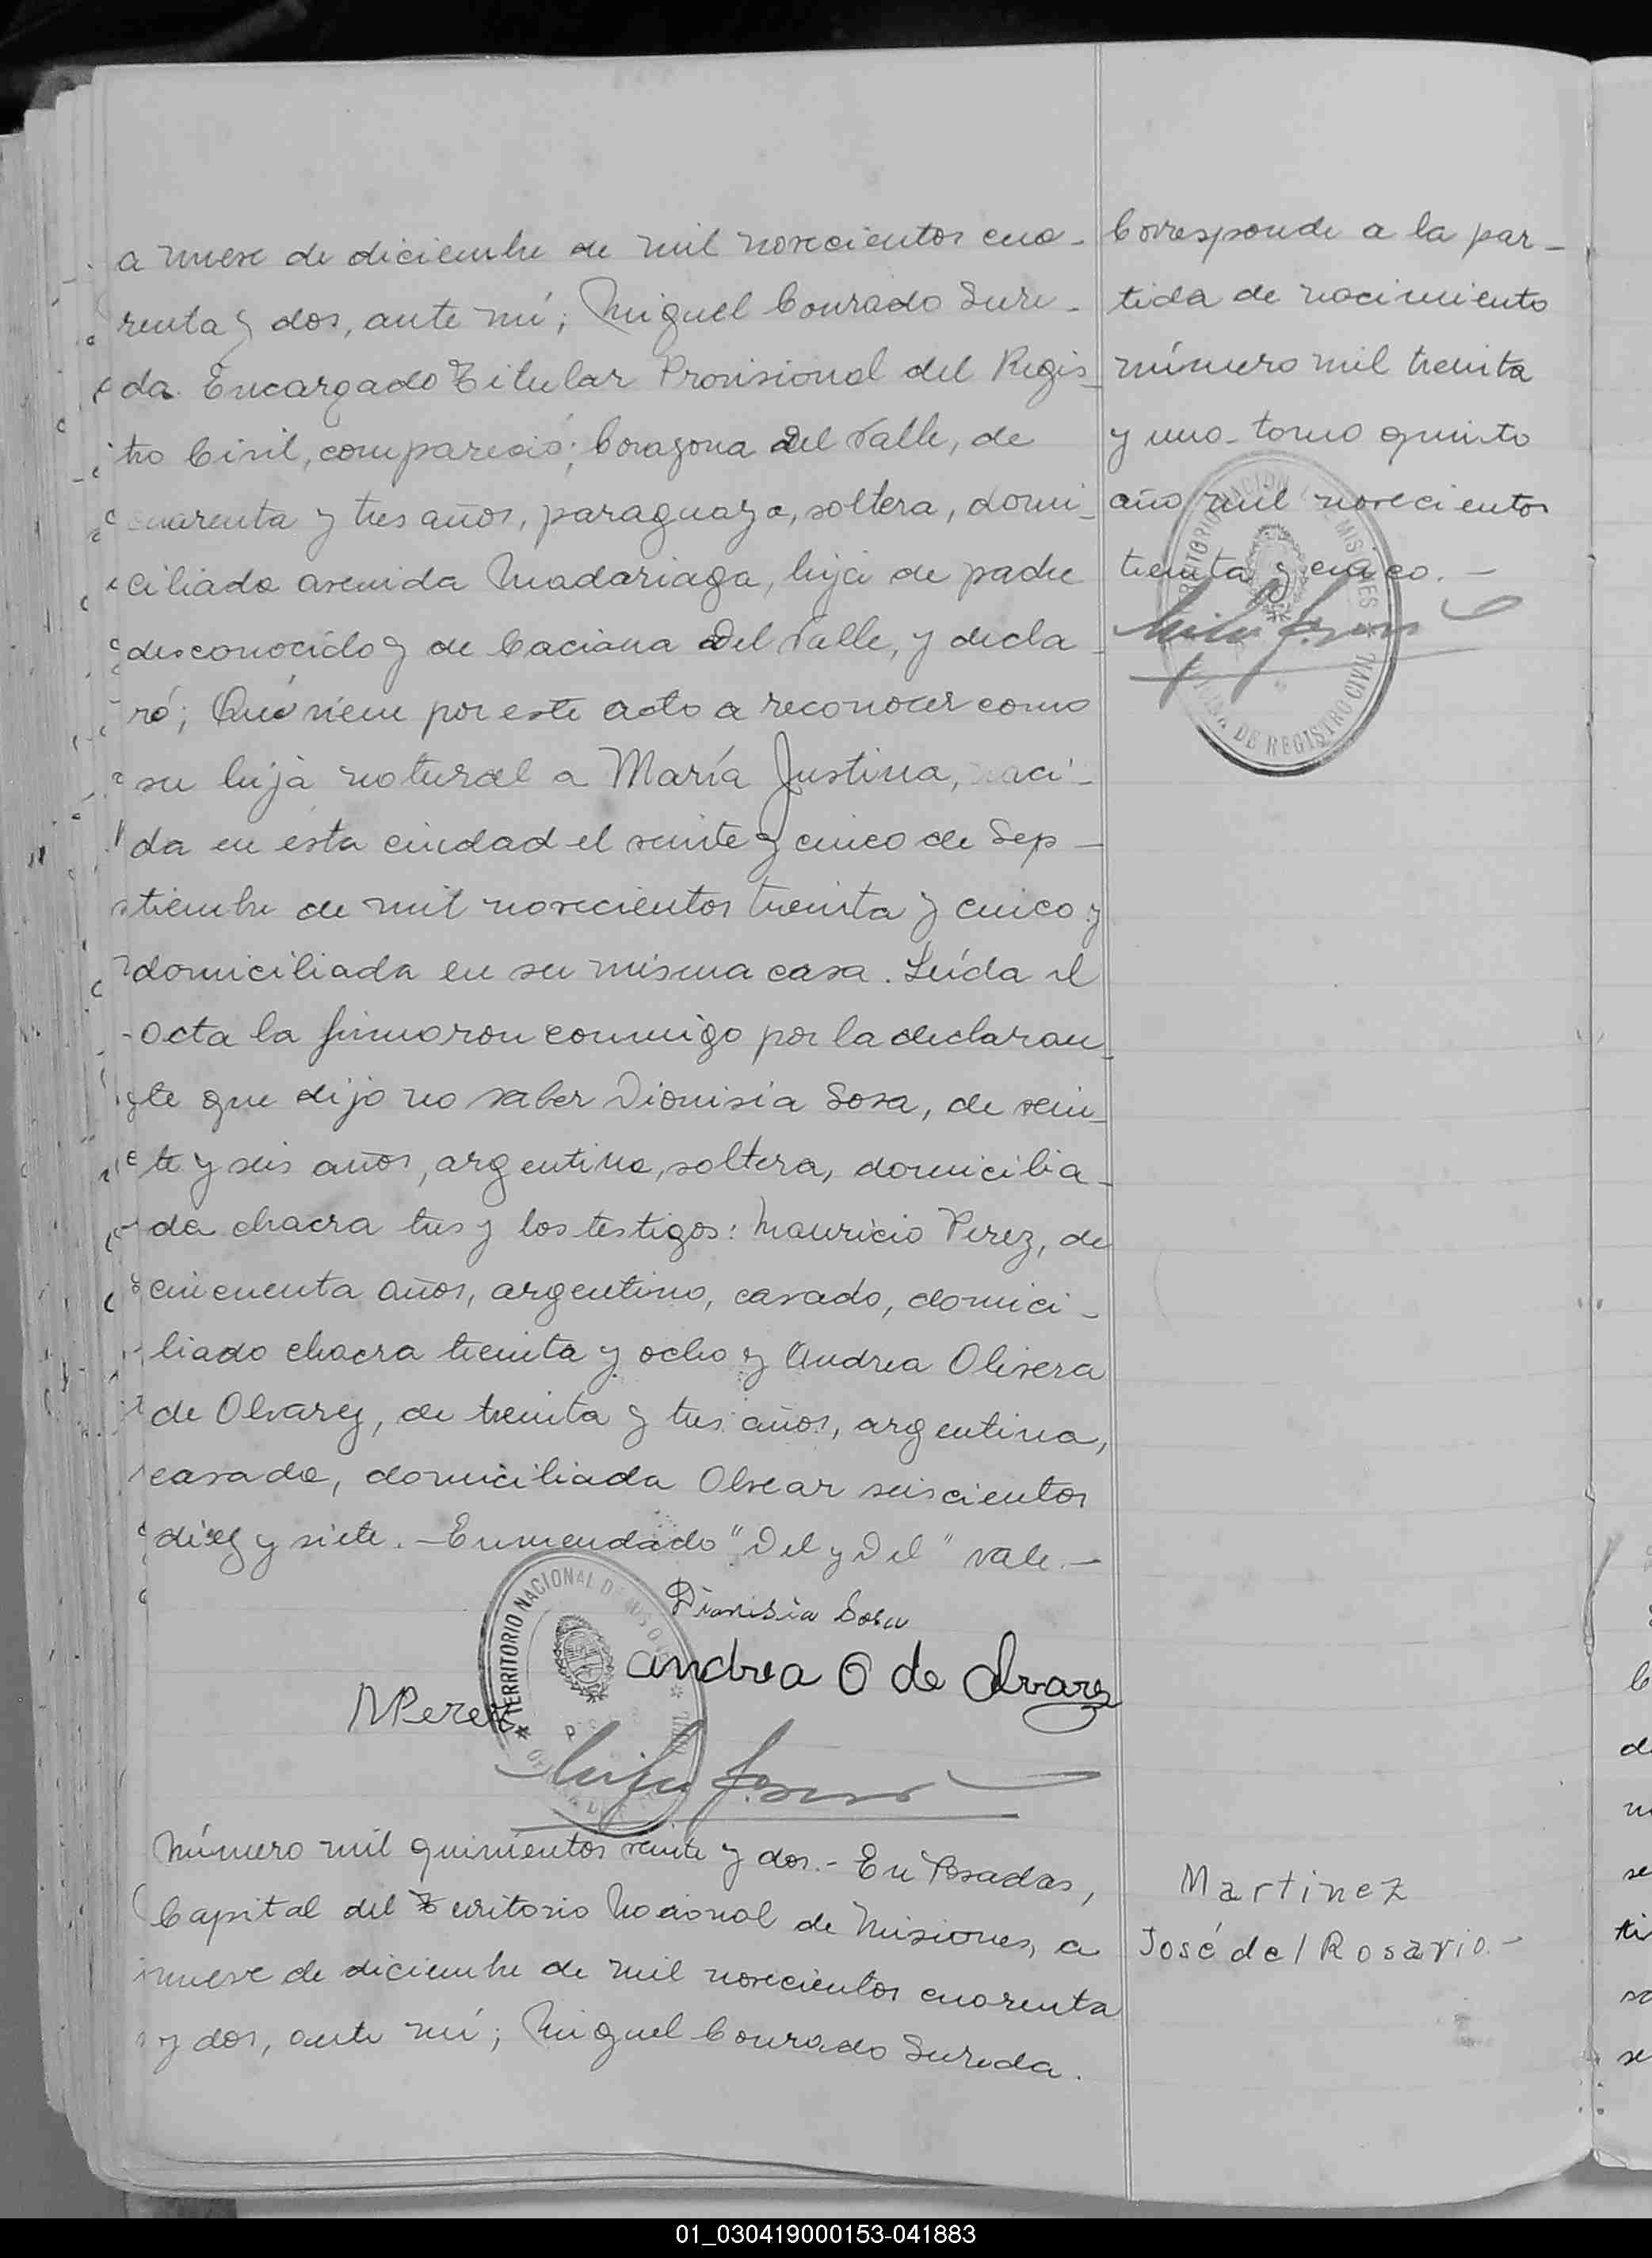 a nueve de diciembre de mil novecientos cua-
renta y dos, ante mí; Miguel Conrado Sure-
da Encargado Titular Provisional del Regis-
tro Civil, compareció; Coragona Del Valle, de
cuarenta y tres años, paraguaya, soltera, domi-
ciliada avenida Madariaga, hija de padre
desconocido y de Caciana Del Valle, y decla-
ró; Que viene por este acto a reconocer como
su hija natural a María Justina, naci-
da en esta ciudad el veinte y cinco de Sep-
tiembre de mil novecientos treinta y cinco y
domiciliada en su misma casa. Leída el
acta la firmaron conmigo por la declaran-
te que dijo no saber Dionisia Sosa, de vein-
te y seis años, argentina, soltera, domicilia-
da chacra tres y los testigos: Mauricio Perez, de
cincuenta años, argentino, casado, domici-
liado chacra treinta y ocho y Andrea Olivera
de Alvarez, de treinta y tres años, argentina,
casada, domiciliada Alvear seiscientos
diez y siete. - Enmendado "Del y Del" vale. -
Dionisia Sosa
Andrea O de Alvarez
MPerez
TERRITORIO NACIONAL DE MISIONES
Número mil quinientos veinte y dos. - En Posadas,
Capital del Territorio Nacional de Misiones, a
nueve de diciembre de mil novecientos cuarenta
y dos, ante mí; Miguel Conrado Sureda.
Corresponde a la par-
tida de nacimiento
número mil treinta
y uno - tomo quinto
año mil novecientos
treinta y cinco. -
DE REGISTRO CIVIL
Martinez
José del Rosario. -
01_030419000153-041883